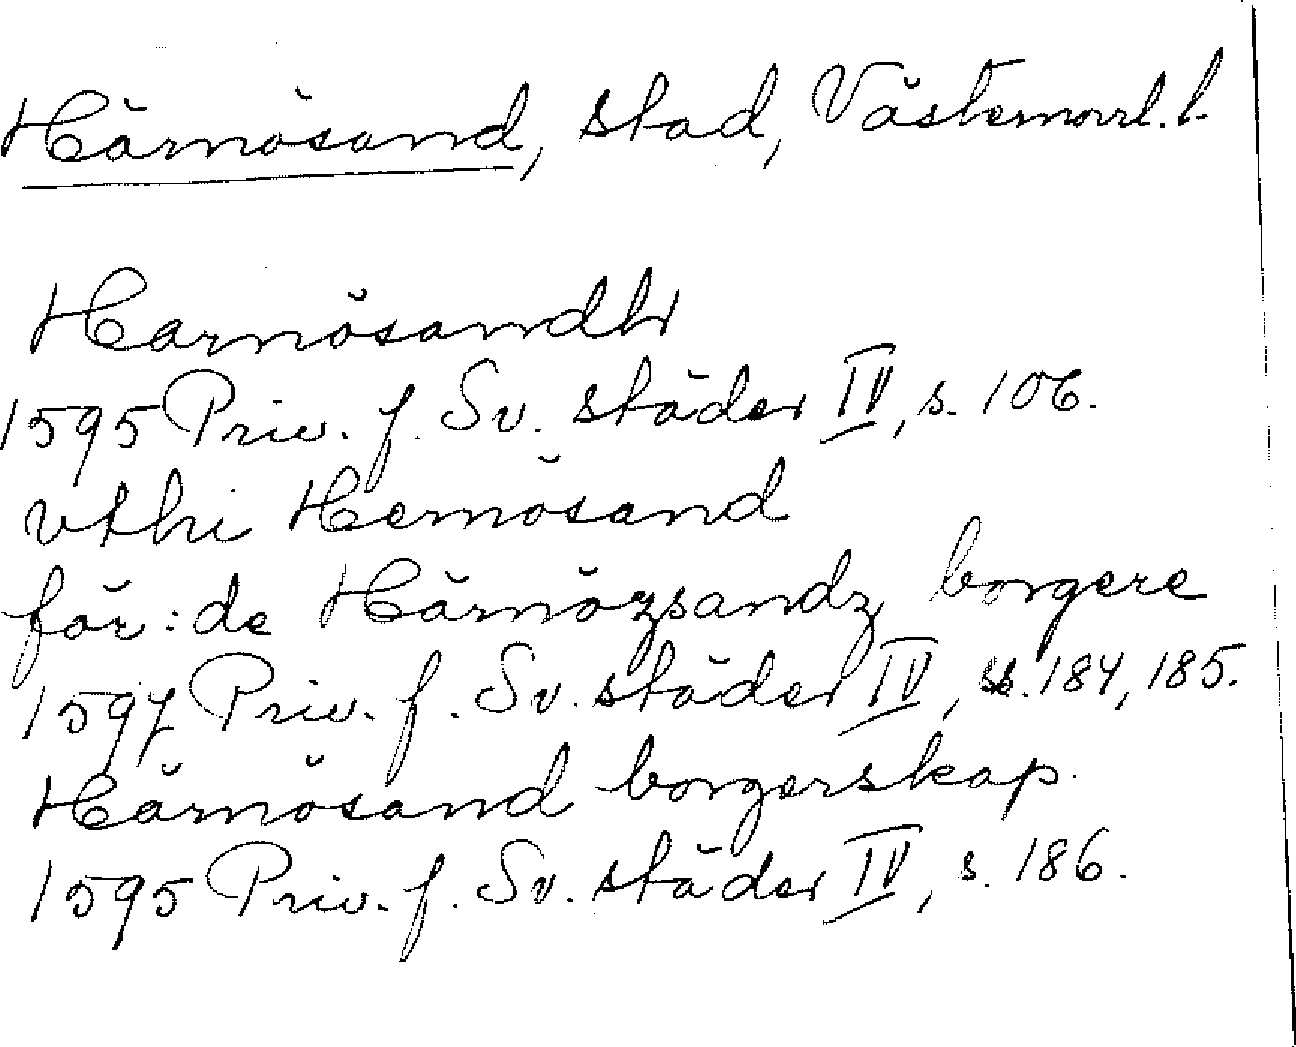 Härnösand, stad, Västernorrl. l.
Harnösandh
1595 Priv. f. Sv. städer IV, s. 106.
vthi Hernösand
för: de Härnözsandz borgere
1597 Priv. f. Sv. städer IV, ss. 184, 185.
Härnösand borgerskap.
1595 Priv. f. Sv. städer IV, s. 186.